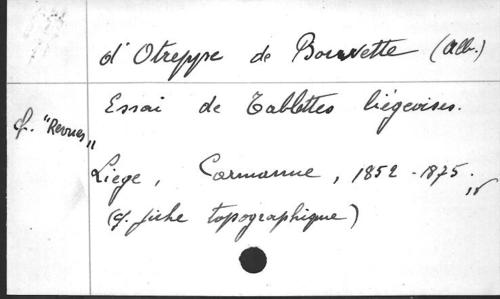 d'Otreppe de Bouvette (Alb.)
Essai de Tablettes liégeoises.
cf. "Revues„
Liège, Carmanne, 1852-1875.
(cf. fiche topographique)